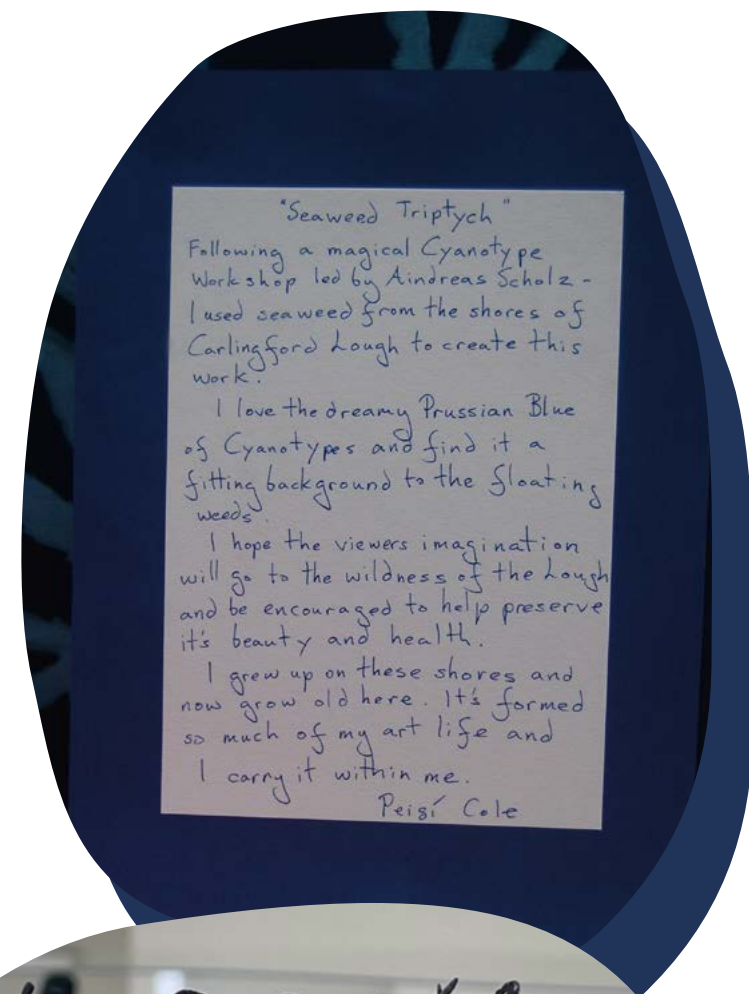 "Seaweed Triptych"
Following a magical Cyanotype
Workshop led by Aindreas Scholz -
I used seaweed from the shores of
Carlingford Lough to create this
work.
I love the dreamy Prussian Blue
of Cyanotypes and find it a
fitting background to the floating
weeds.
I hope the viewers imagination
will go to the wildness of the Lough
and be encouraged to help preserve
it's beauty and health.
I grew up on these shores and
now grow old here. It's formed
so much of my art life and
I carry it within me.
Peigí Cole